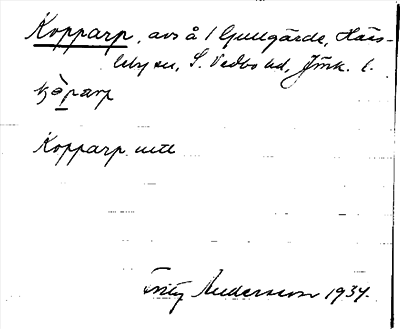 Kopparp, avs å 1 Ljungärde, Häss-
leby sn, S. Vedbo hd, Jönk. l.
kɔ̀parp
Kopparp utt
Fritz Andersson 1934.